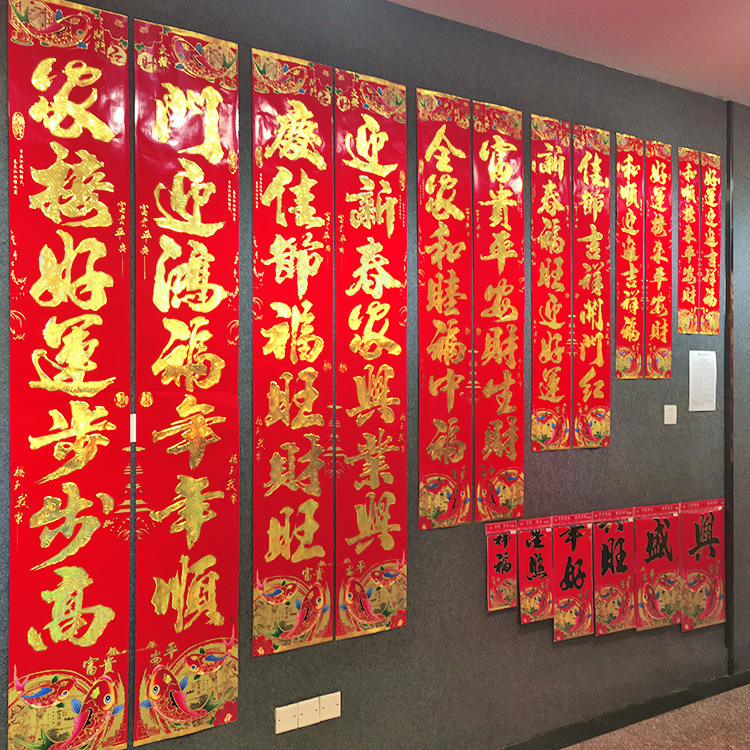 家接好運步步高
門迎鴻福年年順
慶佳節福旺財旺
迎新春家興業興
全家和睦福中福
富貴平安財生財
新春福旺迎好運
佳節吉祥開門紅
和順迎進吉祥福
好運接來平安財
和順接來平安財
好運迎進吉祥福
富貴
平安
富貴
平安
祥福
生照
年好
旺
盛
興